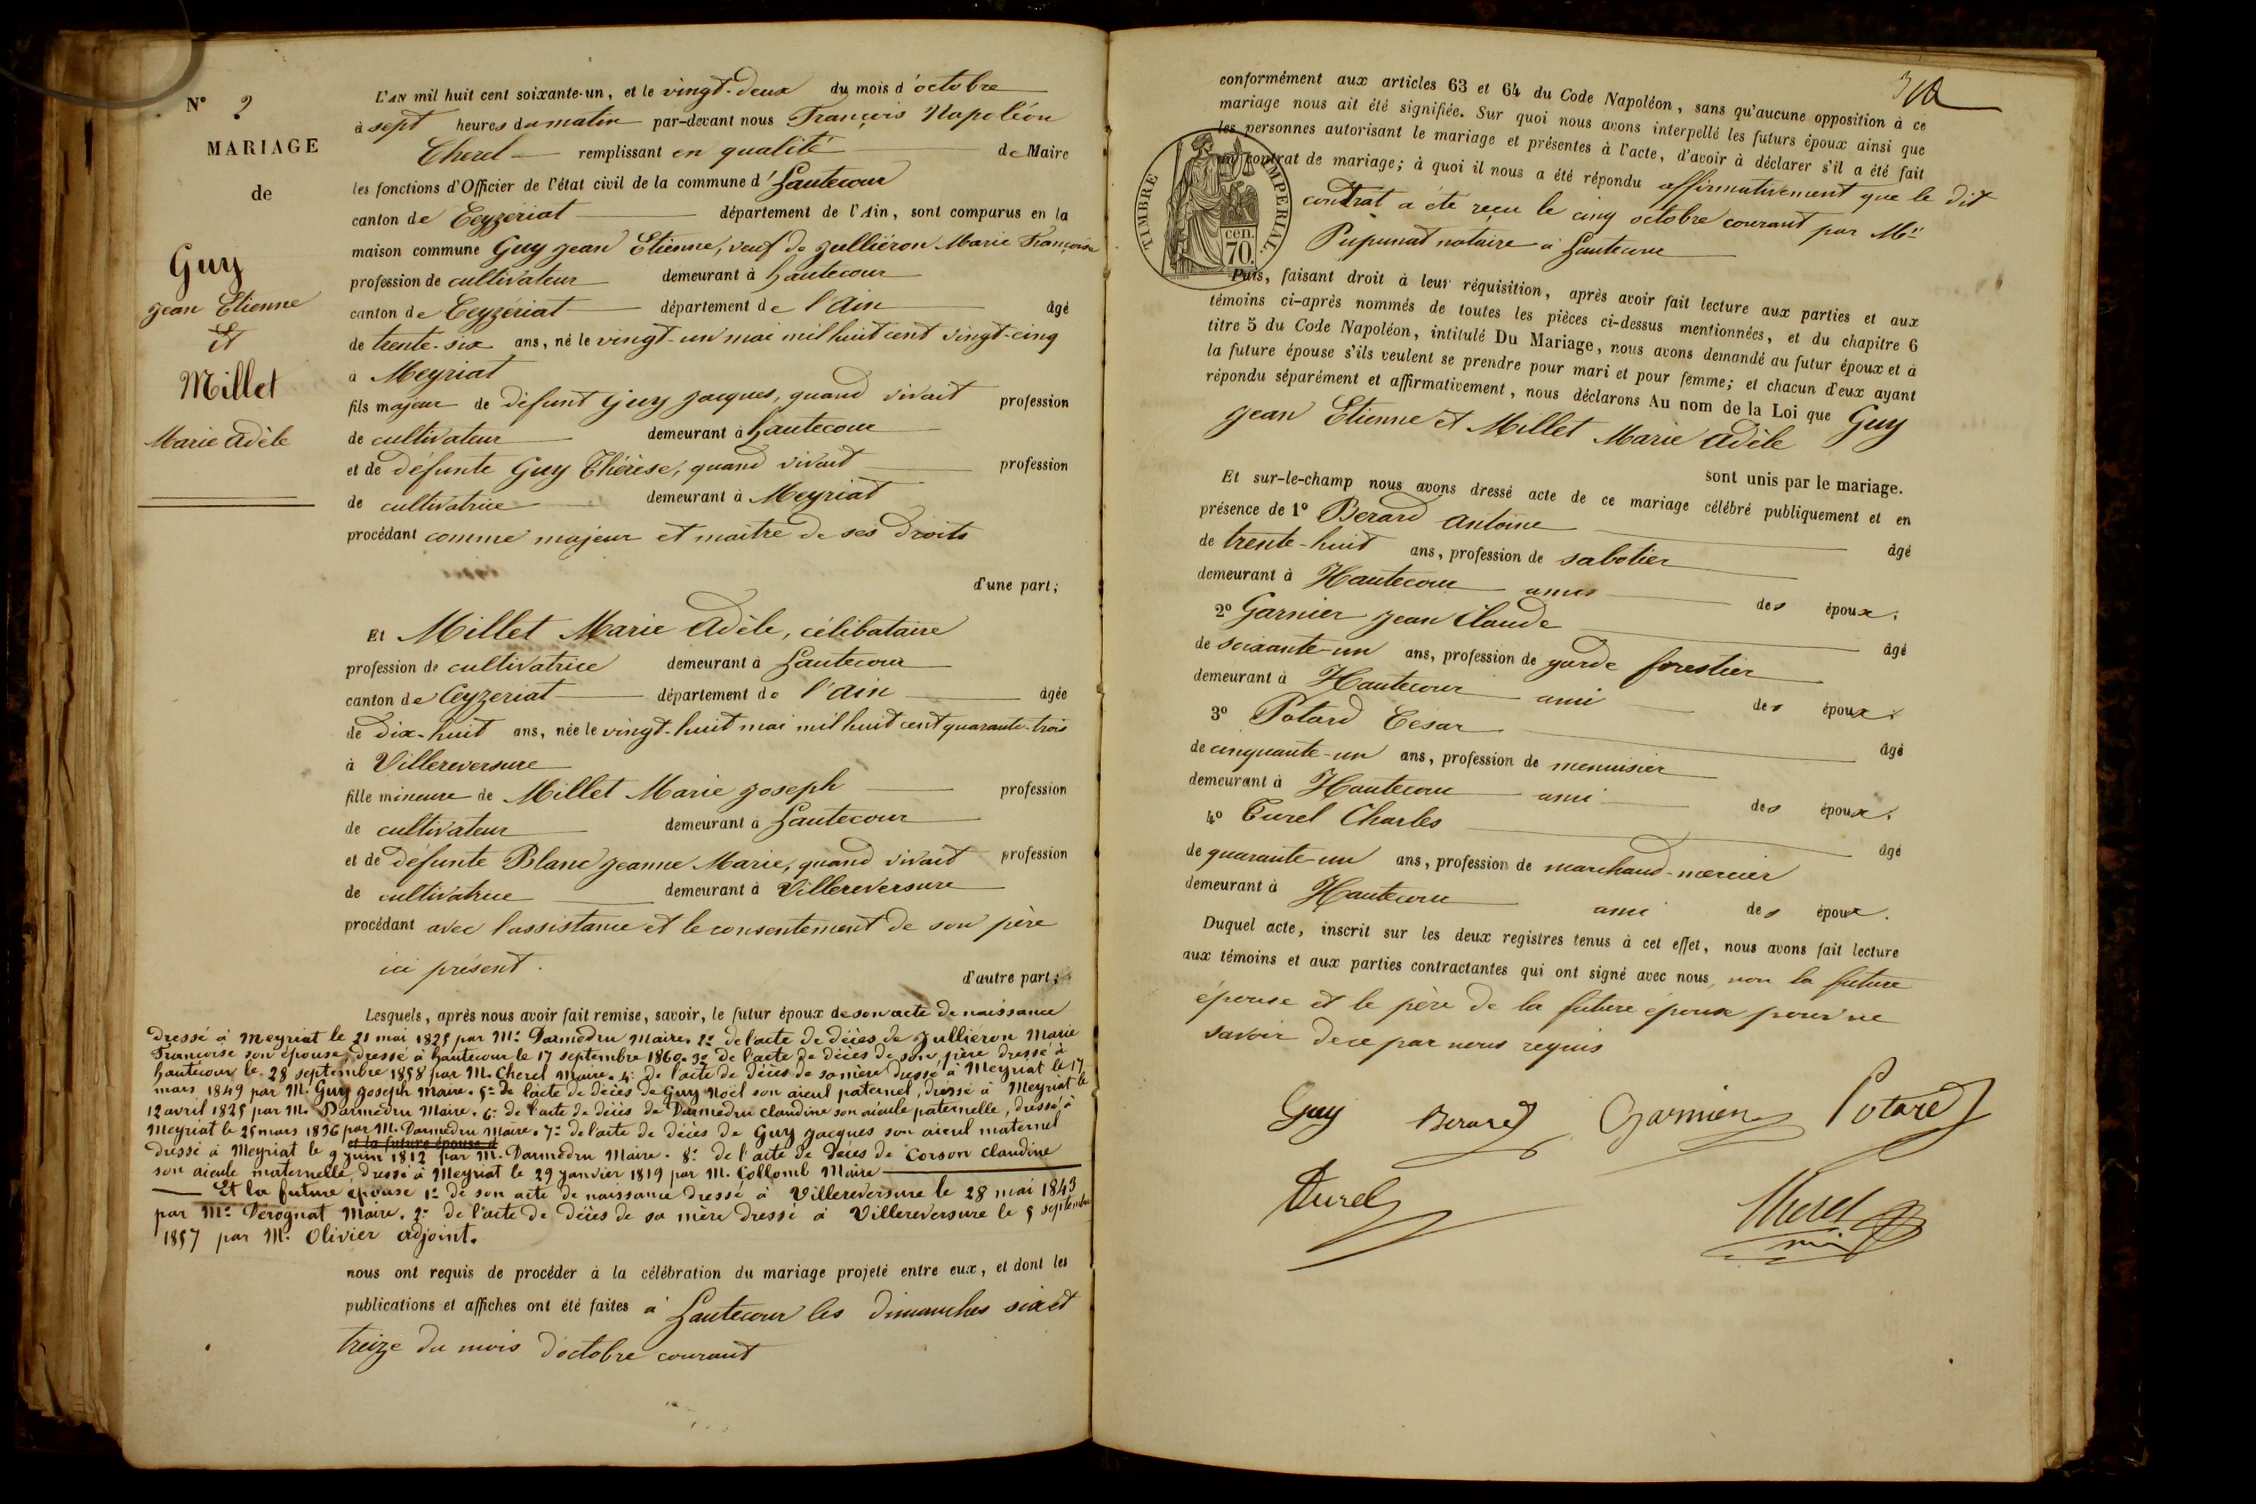 N° 2
MARIAGE
de
Guy
Jean Etienne
Et
Millet
Marie Adèle
L'AN mil huit cent soixante-un, et le vingt-deux du mois d'octobre
à sept heures du matin par-devant nous François Napoléon
Cherel remplissant en qualité de Maire
les fonctions d'Officier de l'état civil de la commune d'hautecour
canton de Ceyzeriat département de l'Ain, sont comparus en la
maison commune Guy Jean Etienne, veuf de Jullieron Marie Françoise
profession de cultivateur demeurant à hautecour
canton de Ceyzeriat département de l'Ain âgé
de trente-six ans, né le vingt-un mai mil huit cent vingt-cinq
à Meyriat
fils majeur de défunt Guy Jacques, quand vivait profession
de cultivateur demeurant à hautecour
et de défunte Guy Thérèse, quand vivait profession
de cultivatrice demeurant à Meyriat
procédant comme majeur et maître de ses droits
d'une part;
Et Millet Marie Adèle, célibataire
profession de cultivatrice demeurant à hautecour
canton de Ceyzeriat département de l'Ain âgée
de dix-huit ans, née le vingt-huit mai mil huit cent quarante-trois
à Villereversure
fille mineure de Millet Marie Joseph profession
de cultivateur demeurant à hautecour
et de défunte Blanc Jeanne Marie, quand vivait profession
de cultivatrice demeurant à Villereversure
procédant avec l'assistance et le consentement de son père
ici présent.
d'autre part;
Lesquels, après nous avoir fait remise, savoir, le futur époux de son acte de naissance
dressé à Meyriat le 21 mai 1825 par Mr Darmedru Maire. 2° de l'acte de décès de Jullieron Marie
Françoise son épouse, dressé à hautecour le 17 septembre 1860. 3° de l'acte de décès de son père dressé à
hautecour le 28 septembre 1858 par M. Cherel Maire. 4° de l'acte de décès de sa mère dressé à Meyriat le 17
mars 1849 par M. Guy Joseph Maire. 5° de l'acte de décès de Guy Noël son aieul paternel, dressé à Meyriat le
12 avril 1825 par M. Darmedru Maire. 6° de l'acte de décès de Darmedru Claudine son aieule paternelle, dressé à
Meyriat le 25 mars 1836 par M. Darmedru Maire. 7° de l'acte de décès de Guy Jacques son aieul maternel
et la future épouse d
dressé à Meyriat le 9 juin 1812 par M. Darmedru Maire. 8° de l'acte de décès de Corson Claudine
son aieule maternelle, dressé à Meyriat le 29 janvier 1819 par M. Collomb Maire
Et la future épouse 1° de son acte de naissance dressé à Villereversure le 28 mai 1843
par Mr Perognat Maire. 2° de l'acte de décès de sa mère dressé à Villereversure le 5 septembre
1857 par M. Olivier adjoint.
nous ont requis de procéder à la célébration du mariage projeté entre eux, et dont les
publications et affiches ont été faites à hautecour les dimanches six et
treize du mois d'octobre courant
conformément aux articles 63 et 64 du Code Napoléon, sans qu'aucune opposition à ce
mariage nous ait été signifiée. Sur quoi nous avons interpellé les futurs époux ainsi que
les personnes autorisant le mariage et présentes à l'acte, d'avoir à déclarer s'il a été fait
un contrat de mariage; à quoi il nous a été répondu affirmativement que le dit
contrat a été reçu le cinq octobre courant par Me
Pupunat notaire à hautecour
TIMBRE IMPERIAL
70 cen.
Puis, faisant droit à leur réquisition, après avoir fait lecture aux parties et aux
témoins ci-après nommés de toutes les pièces ci-dessus mentionnées, et du chapitre 6
titre 5 du Code Napoléon, intitulé Du Mariage, nous avons demandé au futur époux et à
la future épouse s'ils veulent se prendre pour mari et pour femme; et chacun d'eux ayant
répondu séparément et affirmativement, nous déclarons Au nom de la Loi que Guy
Jean Etienne et Millet Marie Adèle
sont unis par le mariage.
Et sur-le-champ nous avons dressé acte de ce mariage célébré publiquement et en
présence de 1° Berard Antoine âgé
de trente-huit ans, profession de sabotier
demeurant à Hautecour amis des époux.
2° Garnier Jean Claude âgé
de soixante-un ans, profession de garde forestier
demeurant à Hautecour ami des époux.
3° Potard César âgé
de cinquante-un ans, profession de menuisier
demeurant à Hautecour ami des époux.
4° Turel Charles âgé
de quarante-un ans, profession de marchand-mercier
demeurant à Hautecour ami des époux.
Duquel acte, inscrit sur les deux registres tenus à cet effet, nous avons fait lecture
aux témoins et aux parties contractantes qui ont signé avec nous, non la future
épouse et le père de la future épouse pour ne
savoir de ce par nous requis
Guy Berard Garnier Potard
Turel Cherel